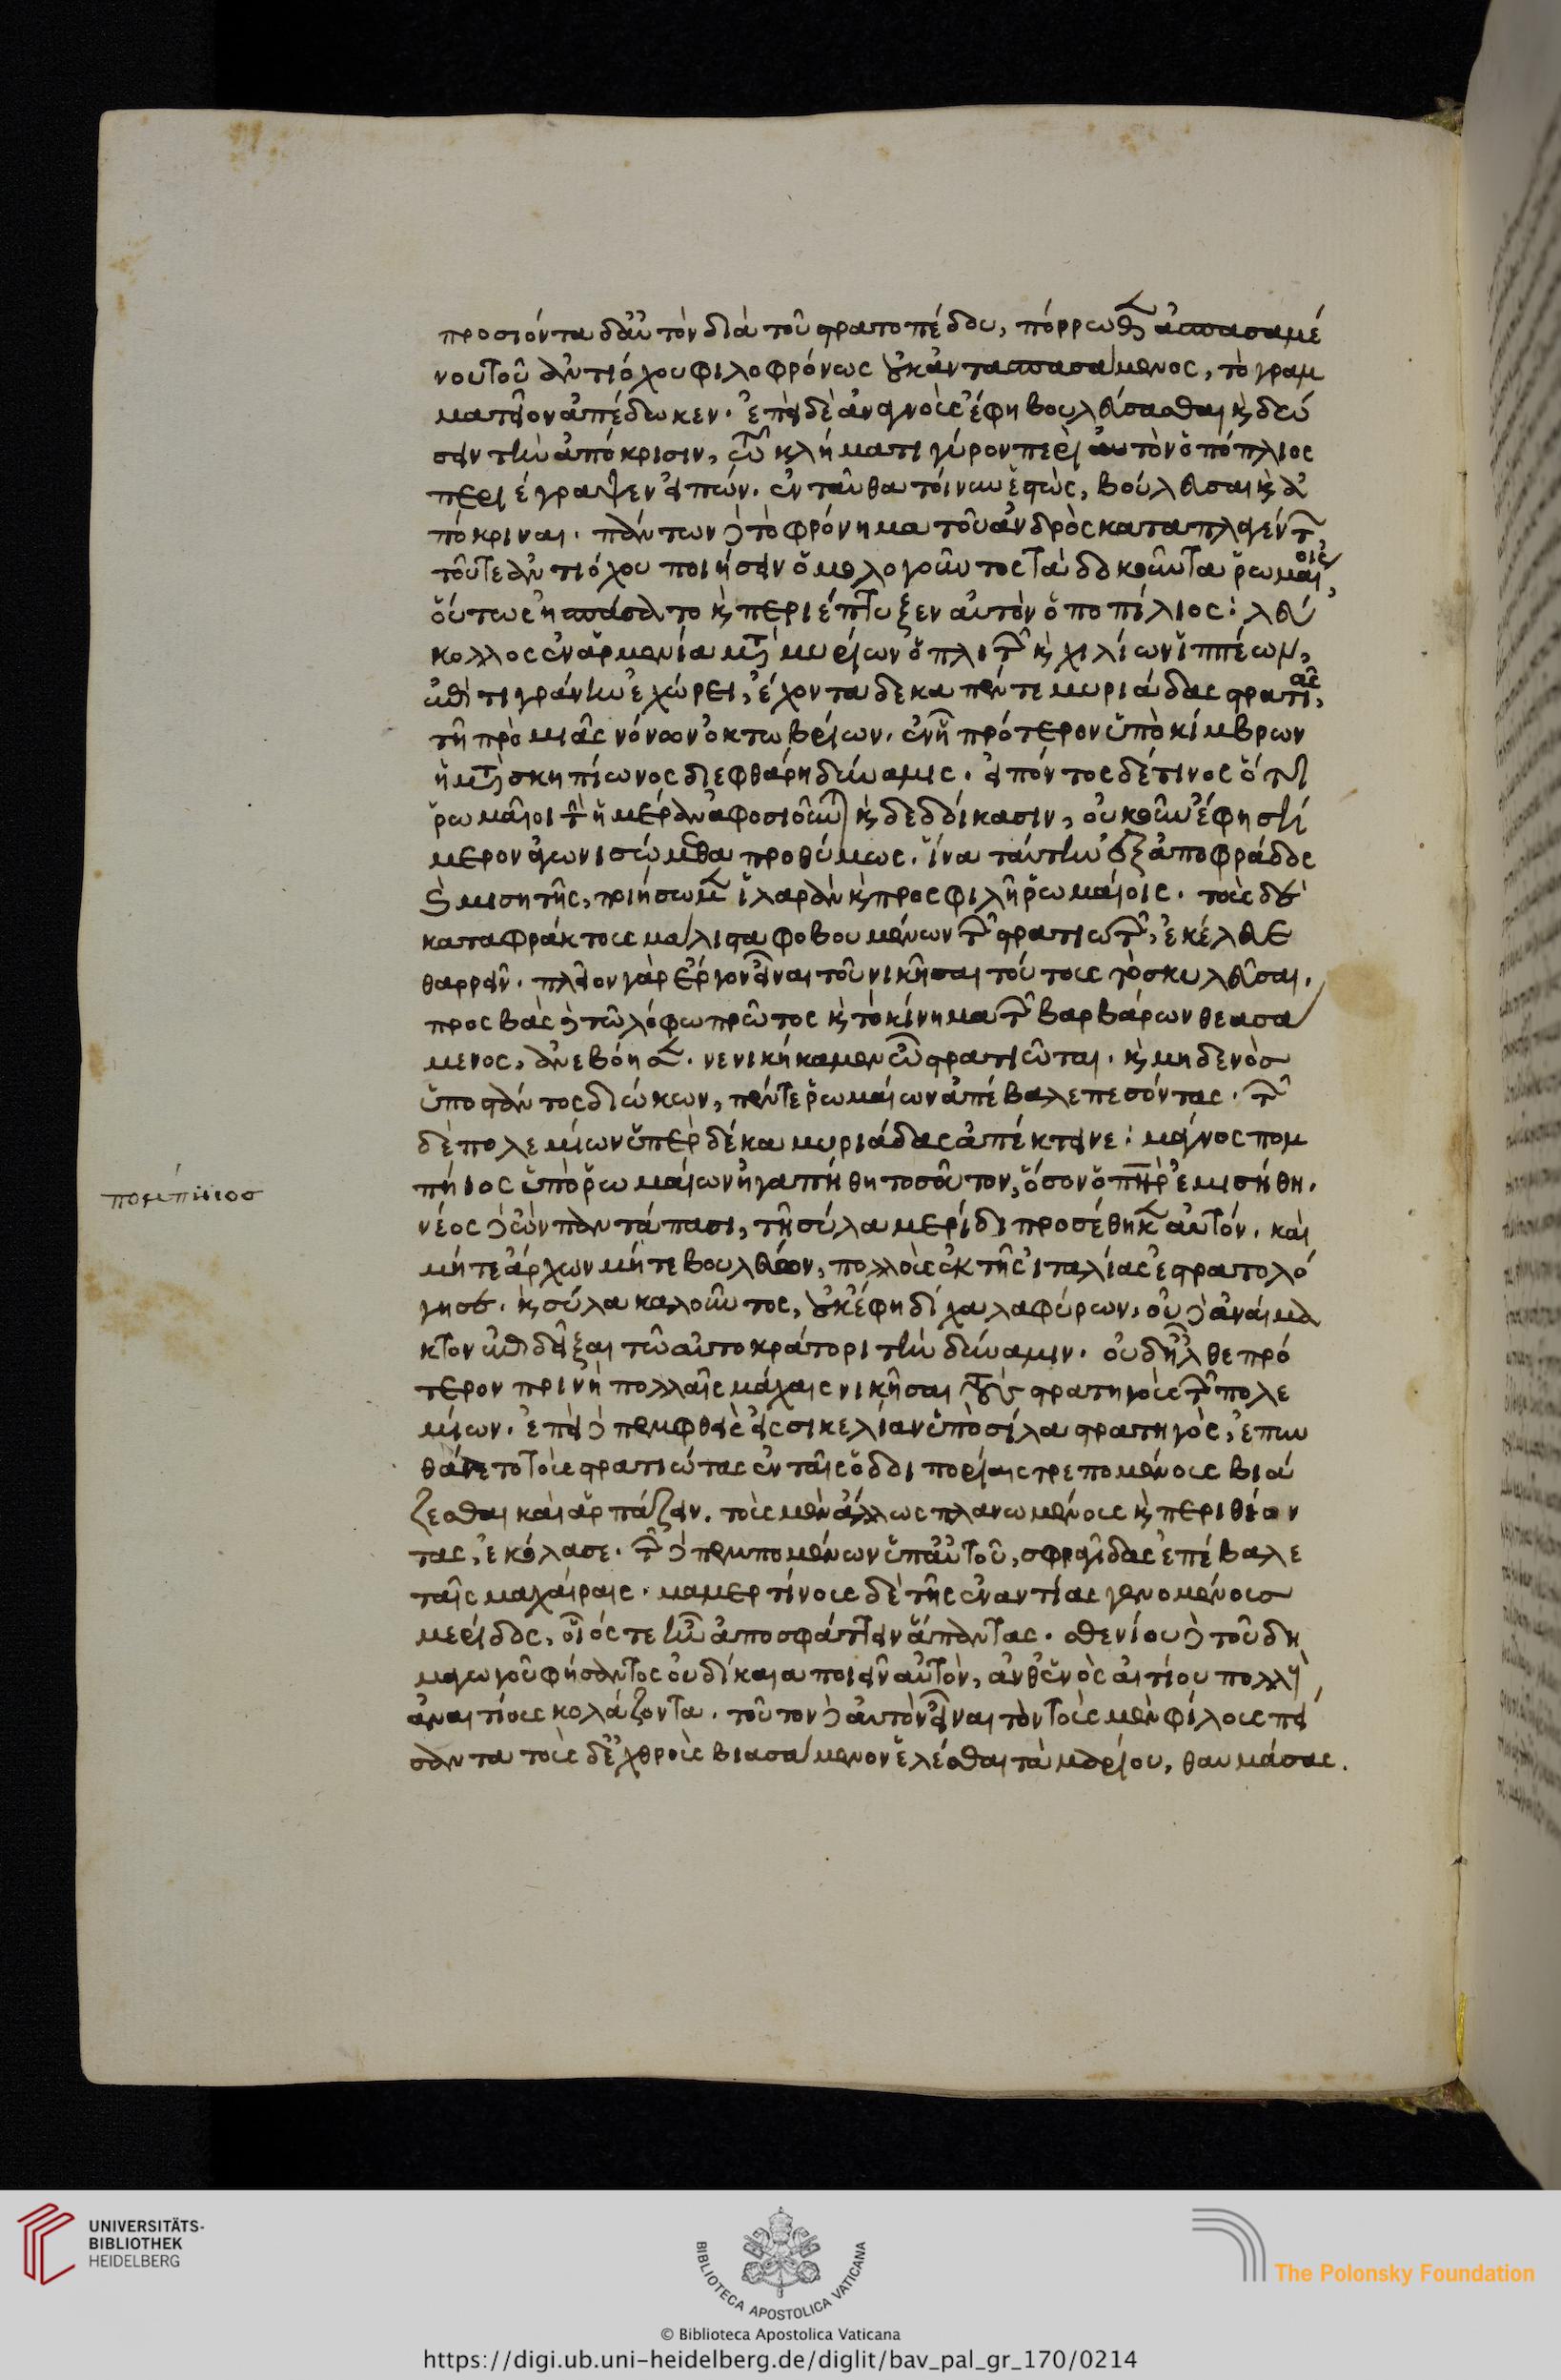 προσιόντα δ' αὐτὸν διὰ τοῦ στρατοπέδου, πόρρωθεν ἀσπασαμέ
νου τοῦ ἀντιόχου φιλοφρόνως οὐκ ἀντασπασάμενος, τὸ γραμ
ματεῖον ἀπέδωκεν. ἐπεὶ δὲ ἀναγνοὺς ἔφη βουλεύσασθαι καὶ δώ
σειν τὴν ἀπόκρισιν, τῶ κλήματι γύρον περὶ αὐτὸν ὁ πόπλιος
περιέγραψεν εἰπών. ἐνταῦθα τοίνυν ἑστὼς, βούλευσαι καὶ ἀ
πόκριναι. πάντων δὲ τὸ φρόνημα τοῦ ἀνδρὸς καταπλαγέντων
τοῦ τε ἀντιόχου ποιήσειν ὁμολογοῦντος τὰ δοκοῦντα ῥωμαίοις,
οὕτως ἠσπάσατο καὶ περιέπτυξεν αὐτὸν ὁ ποπίλιος: λεύ
κολλος ἐν ἁρμενία μετὰ μυρίων ὁπλιτῶν καὶ χιλίων ἱππέων,
ἐπὶ τιγράνην ἐχώρει, ἔχοντα δεκαπέντε μυριάδας στρατιᾶς,
τῆ πρὸ μιᾶς νόνων ὀκτωβρίων. ἐν ἧ πρότερον ὑπὸ κίμβρων
ἡ μετὰ σκηπίωνος διεφθάρη δύναμις. εἰπόντος δέ τινος ὅτι
ῥωμαῖοι τὴν ἡμέραν ἀφοσιοῦνται καὶ δεδοίκασιν, οὐκοῦν ἔφη σή
μερον ἀγωνισώμεθα προθύμως. ἵνα ταύτην ἐξ ἀποφράδος
καὶ μισητῆς, ποιήσωμεν ἱλαρὰν καὶ προσφιλῆ ῥωμαίοις. τοὺς δὲ
καταφράκτους μάλιστα φοβουμένων τῶν στρατιωτῶν, ἐκέλευε
θαρρεῖν. πλεῖον γὰρ ἔργον εἶναι τοῦ νικῆσαι τούτους τὸ σκυλεῦσαι.
προσβὰς δὲ τῶ λόφω πρῶτος καὶ τὸ κίνημα τῶν βαρβάρων θεασά
μενος, ἀνεβόησεν. νενικήκαμεν ὦ στρατιῶται. καὶ μηδενὸσ
ὑποστάντος διώκων, πέντε ῥωμαίων ἀπέβαλε πεσόντας. τῶν
δὲ πολεμίων ὑπὲρ δέκα μυριάδας ἀπέκτεινε: μάγνος πομ
πήιος ὑπὸ ῥωμαίων ἠγαπήθη τοσοῦτον, ὅσον ὁ πατὴρ ἐμισήθη.
πομπήιοσ
νέος δὲ ὢν παντάπασι, τῆ σύλα μερίδι προσέθηκεν αὑτόν. καὶ
μήτε ἄρχων μήτε βουλεύων, πολλοὺς ἐκ τῆς ἰταλίας ἐστρατολό
γησε. καὶ σύλα καλοῦντος, οὐκ ἔφη δίχα λαφύρων, οὐδὲ ἀναίμα
κτον ἐπιδεῖξαι τῶ αὐτοκράτορι τὴν δύναμιν. οὐδ' ἦλθε πρό
τερον πρινὴ πολλαῖς μάχαις νικῆσαι τοὺς στρατηγοὺς τῶν πολε
μίων. ἐπεὶ δὲ πεμφθεὶς εἰς σικελίαν ὑπὸ σίλα στρατηγὸς, ἐπυν
θάνετο τοὺς στρατιώτας ἐν ταῖς ὁδοιπορίαις τρεπομένους βιά
ζεσθαι καὶ ἁρπάζειν. τοὺς μὲν ἄλλως πλανωμένους καὶ περιθέον
τας, ἐκόλασε. τῶν δὲ πεμπομένων ὑπ' αὐτοῦ, σφραγῖδας ἐπέβαλε
ταῖς μαχαίραις. μαμερτίνους δὲ τῆς ἐναντίας γενομένουσ
μερίδος, οἷός τε ἦν ἀποσφάττειν ἅπαντας. σθενίου δὲ τοῦ δη
μαγωγοῦ φήσαντος οὐ δίκαια ποιεῖν αὐτὸν, ἀνθ' ἑνὸς αἰτίου πολλοὺς
ἀναιτίους κολάζοντα. τοῦτον δὲ αὐτὸν εἶναι τὸν τοὺς μὲν φίλους πεί
σαντα τοὺς δ' ἐχθροὺς βιασάμενον ἑλέσθαι τὰ μαρίου, θαυμάσας.
UNIVERSITÄTS-
BIBLIOTHEK
HEIDELBERG
BIBLIOTECA APOSTOLICA VATICANA
The Polonsky Foundation
© Biblioteca Apostolica Vaticana
https://digi.ub.uni-heidelberg.de/diglit/bav_pal_gr_170/0214